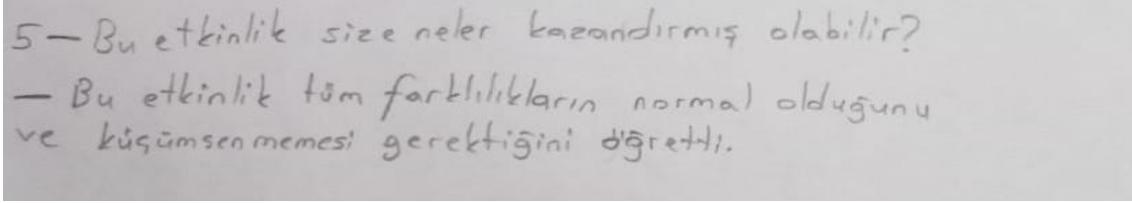 5- Bu etkinlik size neler kazandırmış olabilir?
- Bu etkinlik tüm farklılıkların normal olduğunu
ve küçümsenmemesi gerektiğini öğretti.